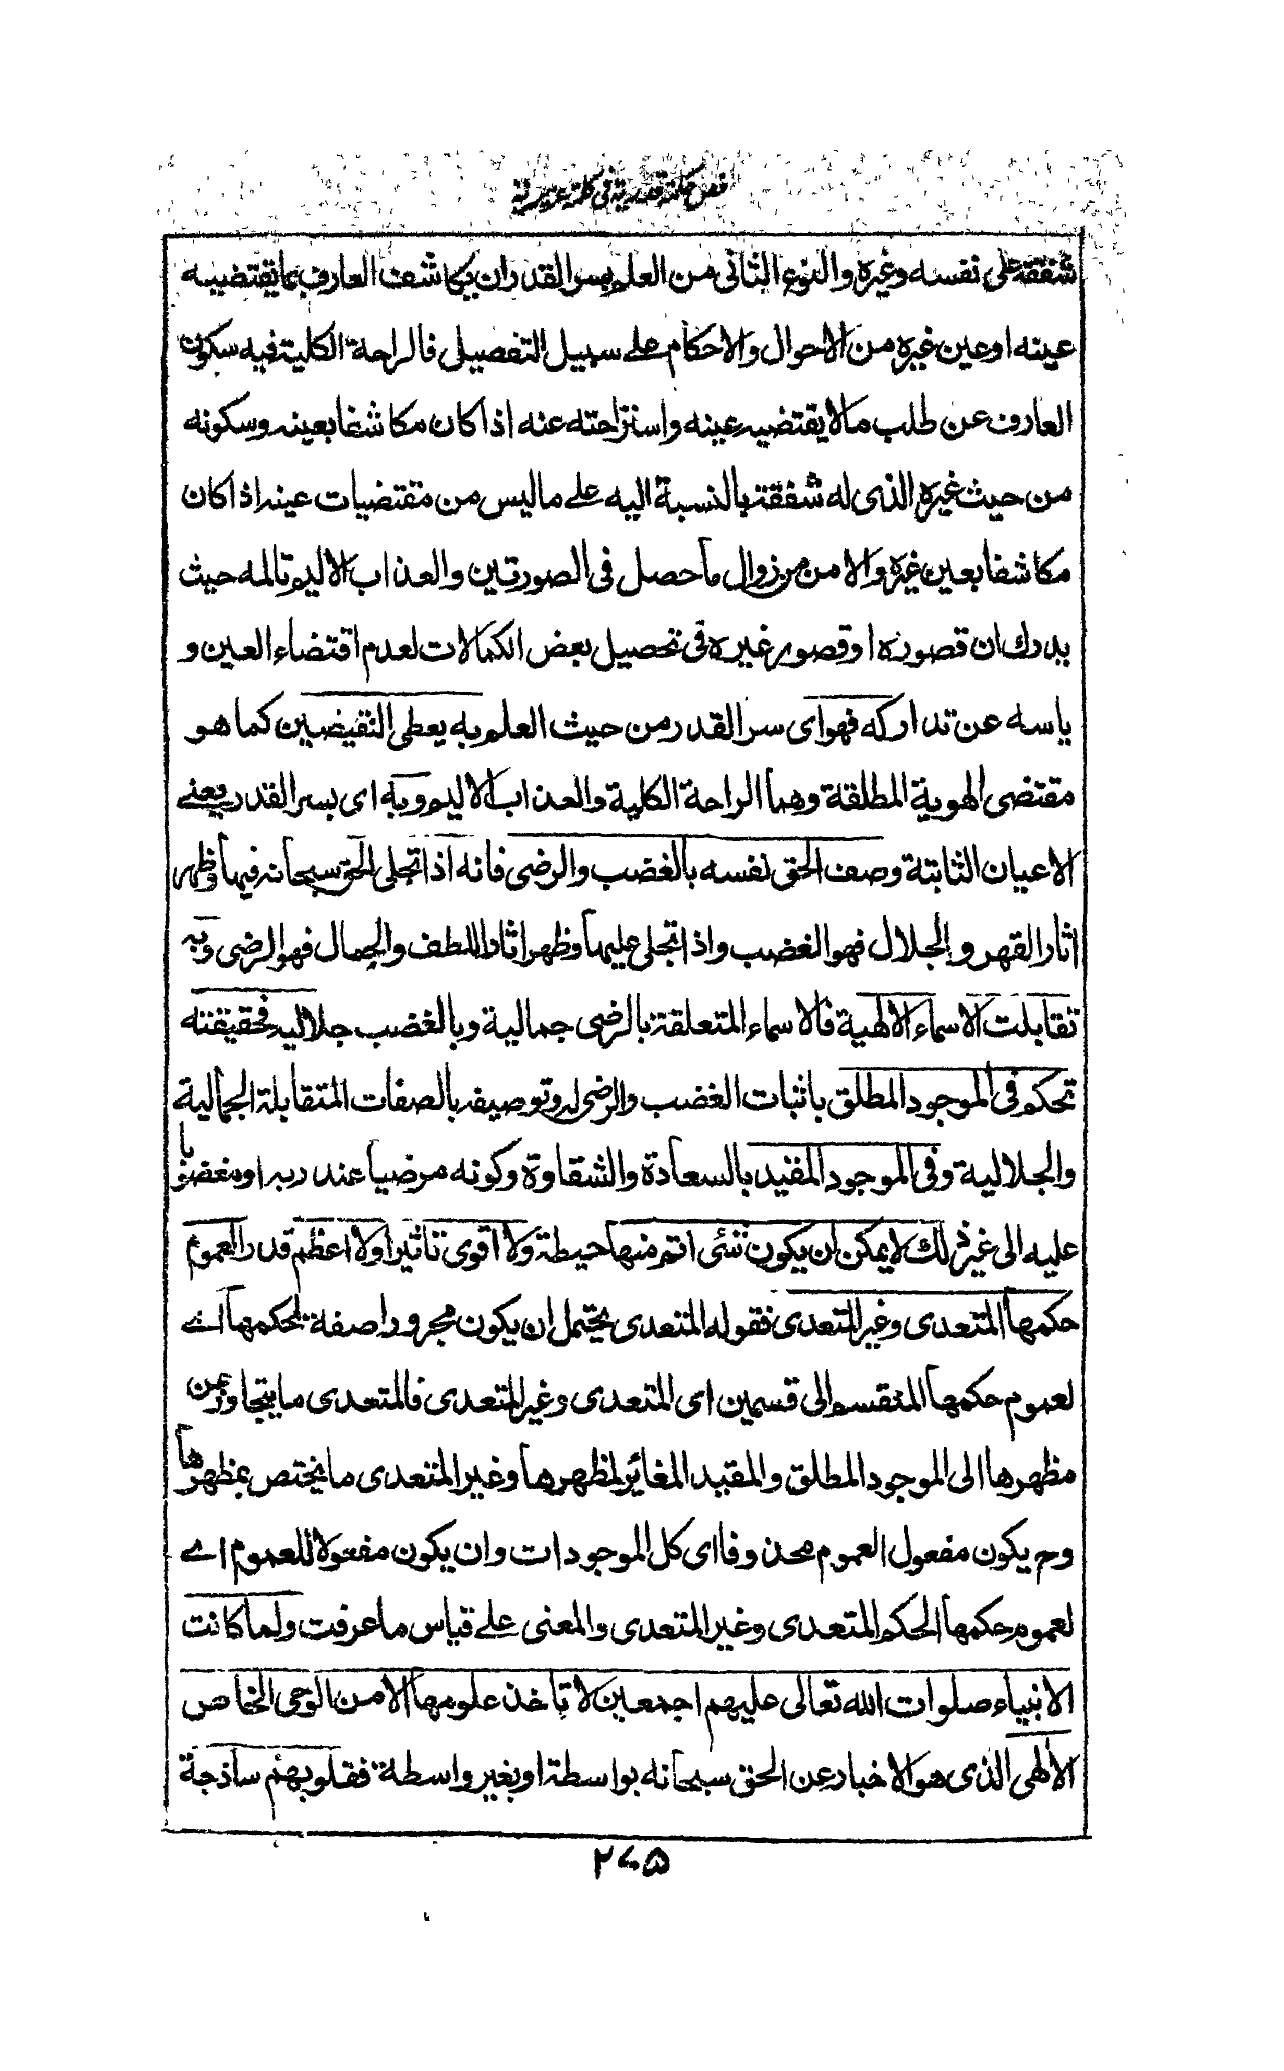 فص حكمة قدرية فى كلمة عزيرية
شفقة على نفسه وغيره والنوع الثانى من العلم بسر القدر ان يكاشف العارف بما يقتضيه
عينه او عين غيره من الاحوال والاحكام على سبيل التفصيل فالراحة الكلية فيه سكون
العارف عن طلب ما لا يقتضيه عينه واستراحته عنه اذا كان مكاشفا بعينه وسكونه
من حيث غيره الذى له شفقة بالنسبة اليه على ما ليس من مقتضيات عينه اذا كان
مكاشفا بعين غيره والامن من زوال ما حصل فى الصورتين والعذاب الاليم تالمه حيث
يدرك ان قصوره او قصور غيره فى تحصيل بعض الكمالات لعدم اقتضاء العين و
ياسه عن تداركه فهو اى سر القدر من حيث العلم به يعطى النقيضين كما هو
مقتضى الهوية المطلقة وهما الراحة الكلية والعذاب الاليم وبه اى بسر القدر يعنے
الاعيان الثابتة وصف الحق نفسه بالغضب والرضى فانه اذا تجلى الحق سبحانه فيها وظهر
اثار القهر والجلال فهو الغضب واذا تجلى عليها وظهر اثار اللطف والجمال فهو الرضى وبه
تقابلت الاسماء الالهية فالاسماء المتعلقة بالرضى جمالية وبالغضب جلالية فحقيقته
تحكم فى الموجود المطلق باثبات الغضب والرضى له وتوصيفه بالصفات المتقابلة الجمالية
والجلالية وفى الموجود المقيد بالسعادة والشقاوة وكونه مرضيا عند ربه او مغضوبا
عليه الى غير ذلك لا يمكن ان يكون شئ اتم منها حيطة ولا اقوى تاثيرا ولا اعظم قدرا لعموم
حكمها المتعدى وغير المتعدى فقوله المتعدى يحتمل ان يكون مجرورا صفة لحكمها اے
لعموم حكمها المنقسم الى قسمين اى المتعدى وغير المتعدى فالمتعدى ما يتجاوز عن
مظهرها الى الموجود المطلق والمقيد المغائر لمظهرها وغير المتعدى ما يختص بمظهرها
وح يكون مفعول العموم محذوفا اى كل الموجودات وان يكون مفعولا للعموم اے
لعموم حكمها الحكم المتعدى وغير المتعدى والمعنى على قياس ما عرفت ولما كانت
الانبياء صلوات الله تعالى عليهم اجمعين لا تاخذ علومها الا من الوحى الخاص
الالهى الذى هو الاخبار عن الحق سبحانه بواسطة او بغير واسطة فقلوبهم ساذجة
٢٧٥